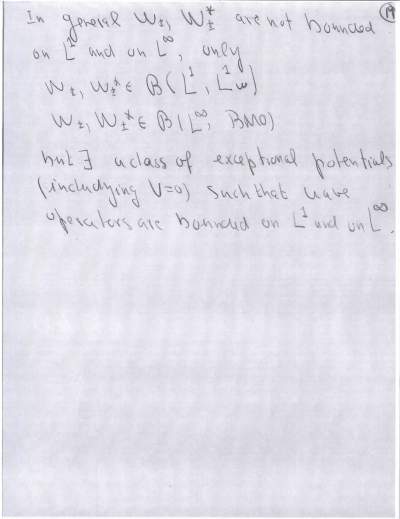 In general W±, W±* are not bounded
on L¹ and on L∞, only
W±, W±* ∈ B(L¹, L¹w)
W±, W±* ∈ B(L∞, BMO)
but ∃ a class of exceptional potentials
(includying V=0) such that wave
operators are bounded on L¹ and on L∞.